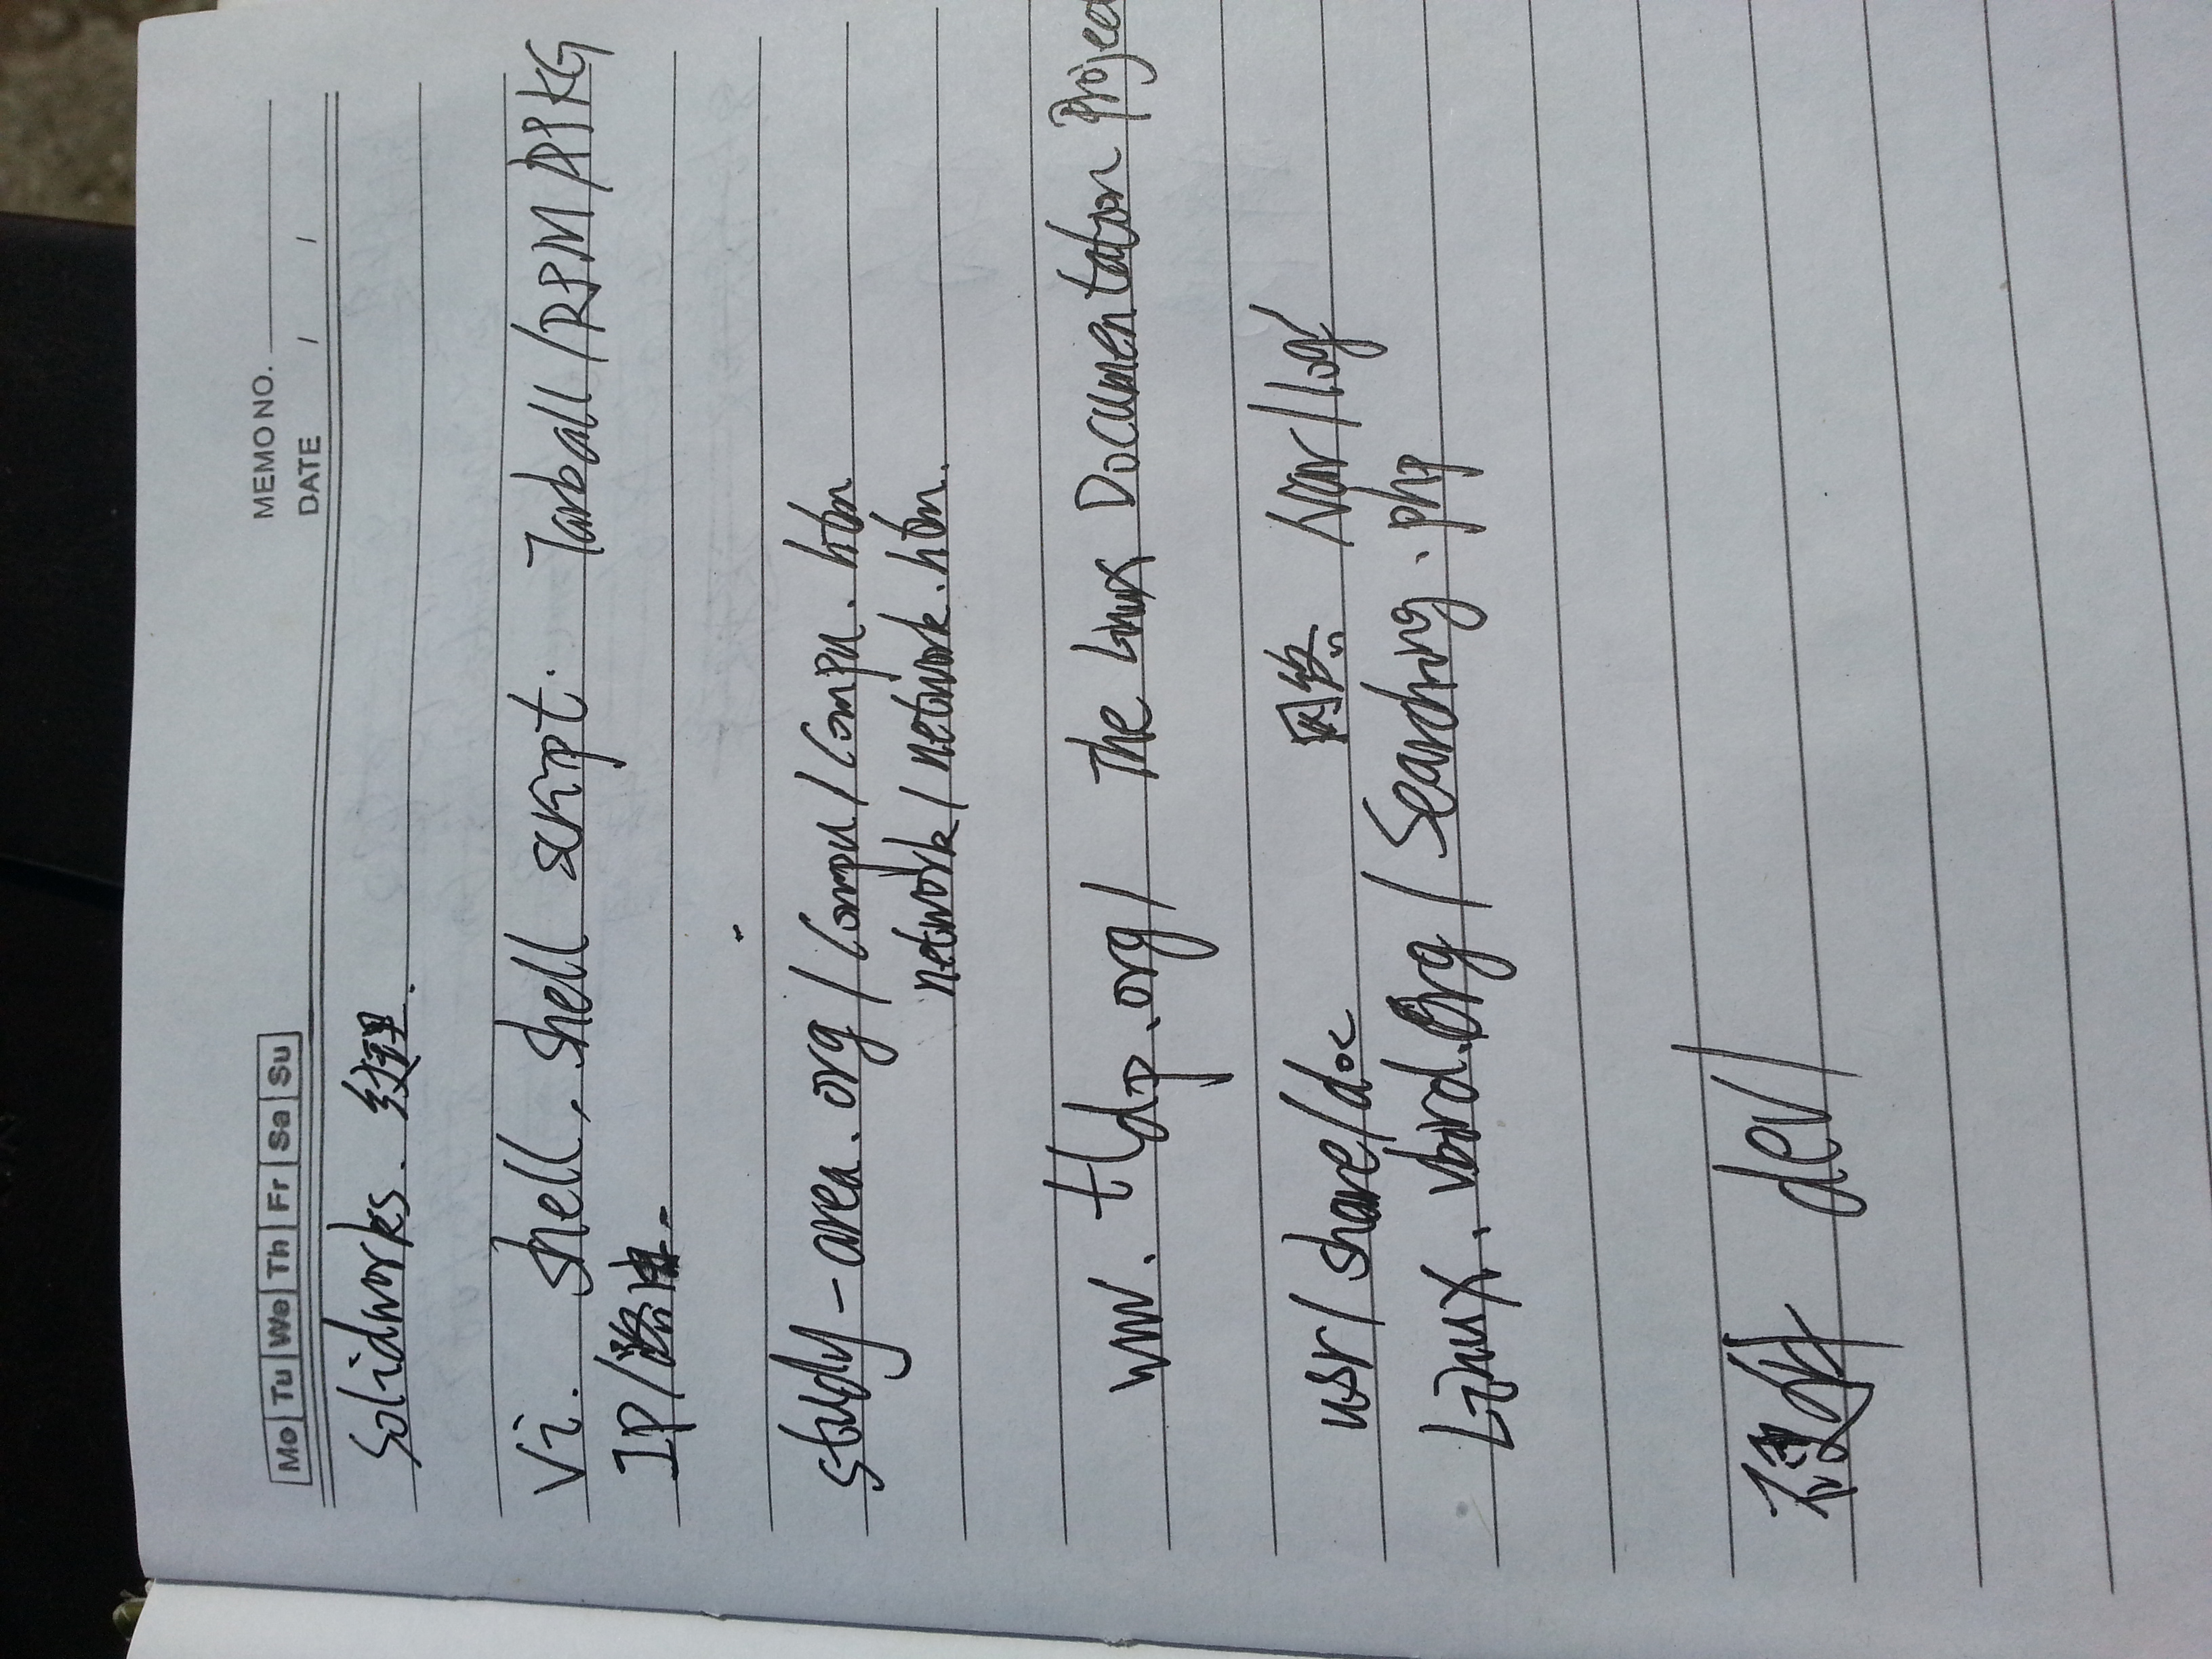 Mo Tu We Th Fr Sa Su
MEMO NO.
DATE / /
Solidworks. 纹理.
Vi. shell, shell script. Tarball/RPM/DPKG
IP/路由.
study-area.org/Compu/Compu.htm
network/network.htm.
www.tldp.org/ The Linux Documentation Project
usr/share/doc 网络 /var/log/
Linux.vbird.org/Searching.php
硬件 dev/